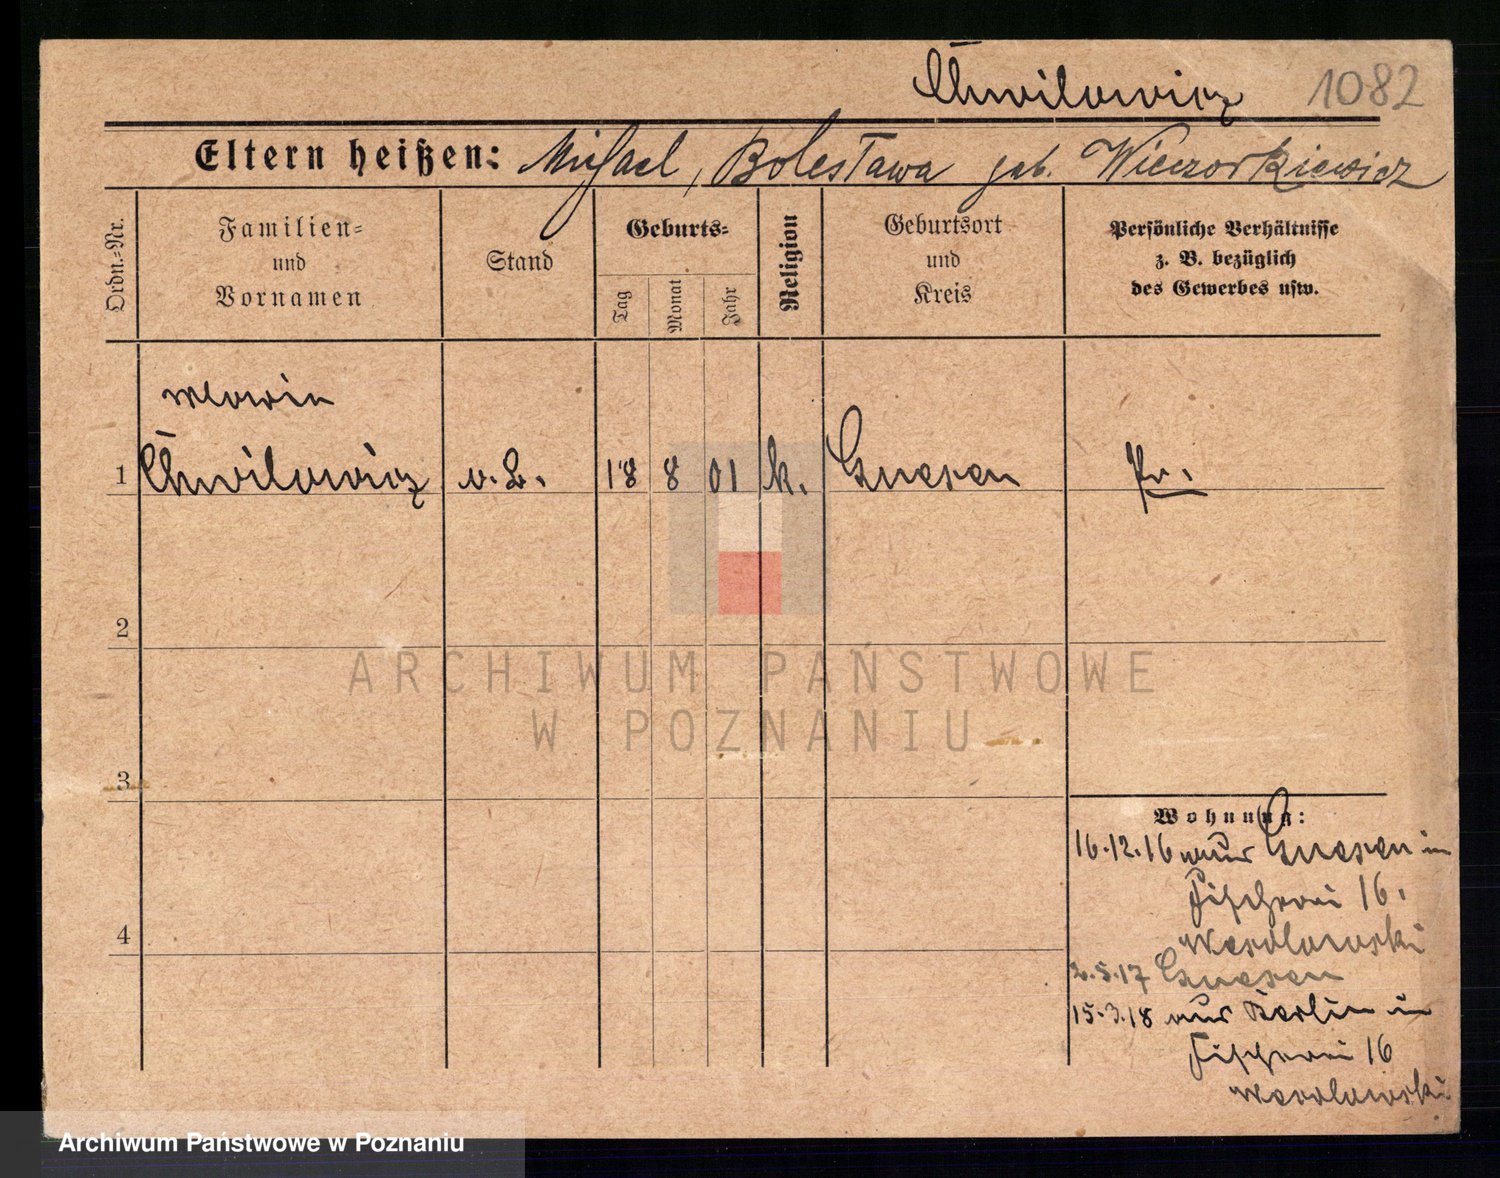 Chwilowicz 1082
Eltern heißen: Michael, Bolesława geb. Wieczorkiewicz
Ordn.-Nr.
Familien-
und
Vornamen
Stand
Geburts-
Tag
Monat
Jahr
Religion
Geburtsort
und
Kreis
Persönliche Verhältnisse
z. B. bezüglich
des Gewerbes usw.
Maria
1 Chwilowicz o. B. 18 8 01 k. Gnesen Pr.
2
3
4
Wohnung:
16.12.16 aus Gnesen in
Fischerei 16.
Wesolowski
2.5.17 Gnesen
15.3.18 aus Berlin in
Fischerei 16
Wesolowski
ARCHIWUM PAŃSTWOWE
W POZNANIU
Archiwum Państwowe w Poznaniu